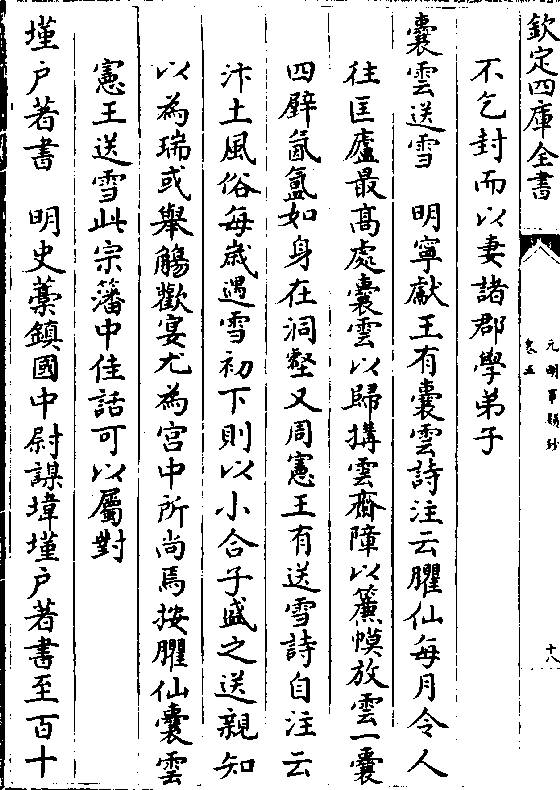 欽定四庫全書
元明事類鈔
卷五
十八
不乞封而以妻諸郡學弟子
囊雲送雪　明寧獻王有囊雲詩注云臞仙每月令人
往匡廬最高處囊雲以歸搆雲齋障以簾幙放雲一囊
四壁氤氲如身在洞壑又周憲王有送雪詩自注云
汴土風俗每歲遇雪初下則以小合子盛之送親知
以為瑞或舉觴歡宴尤為宮中所尚焉按臞仙囊雲
憲王送雪此宗籓中佳話可以屬對
墐户著書　明史藁鎮國中尉謀㙔墐户著書至百十